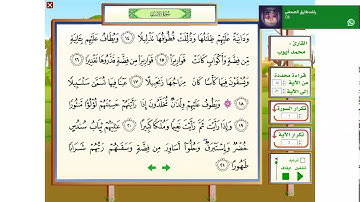 سُورَةُ الإِنسَان
وَدَانِيَةً عَلَيْهِمْ ظِلَالُهَا وَذُلِّلَتْ قُطُوفُهَا تَذْلِيلًا ١٤ وَيُطَافُ عَلَيْهِم بِآنِيَةٍ
مِّن فِضَّةٍ وَأَكْوَابٍ كَانَتْ قَوَارِيرَا ١٥ قَوَارِيرَا مِن فِضَّةٍ قَدَّرُوهَا تَقْدِيرًا ١٦
وَيُسْقَوْنَ فِيهَا كَأْسًا كَانَ مِزَاجُهَا زَنجَبِيلًا ١٧ عَيْنًا فِيهَا تُسَمَّىٰ سَلْسَبِيلًا
١٨ وَيَطُوفُ عَلَيْهِمْ وِلْدَانٌ مُّخَلَّدُونَ إِذَا رَأَيْتَهُمْ حَسِبْتَهُمْ لُؤْلُؤًا مَّنثُورًا
١٩ وَإِذَا رَأَيْتَ ثَمَّ رَأَيْتَ نَعِيمًا وَمُلْكًا كَبِيرًا ٢٠ عَالِيَهُمْ ثِيَابُ سُندُسٍ
خُضْرٌ وَإِسْتَبْرَقٌ وَحُلُّوا أَسَاوِرَ مِن فِضَّةٍ وَسَقَاهُمْ رَبُّهُمْ شَرَابًا
طَهُورًا ٢١
القارئ :
محمد أيوب
قراءة محددة
من الآية
إلى الآية
تكرار السورة
تكرار الآية
ترجمة
تشغيل
إيقاف